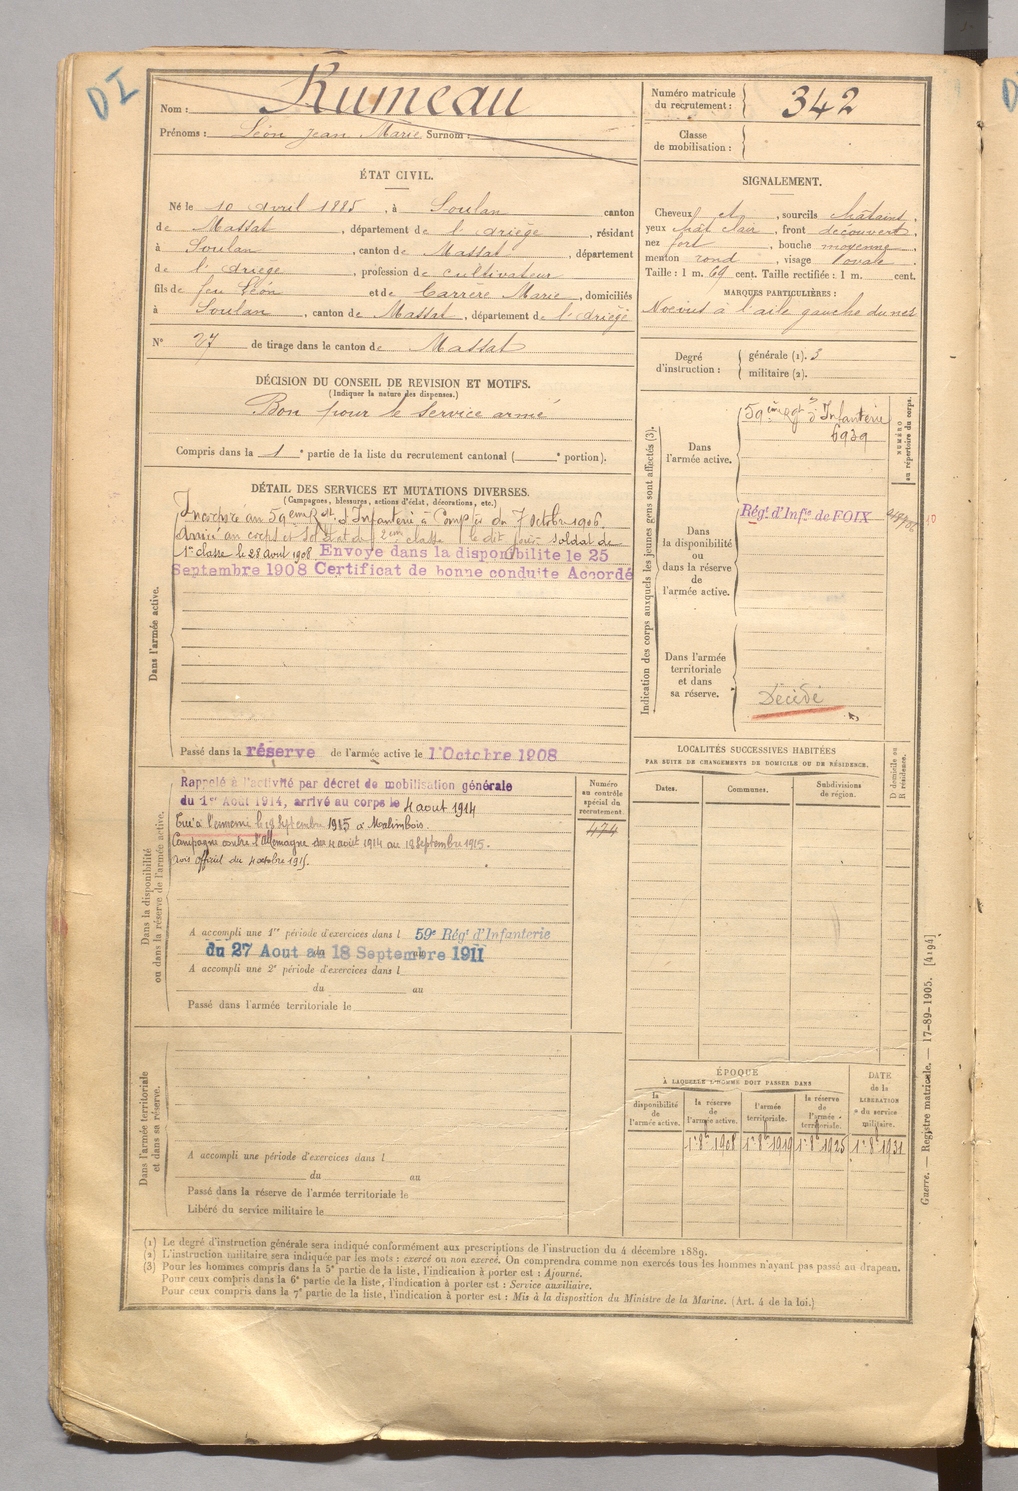 DI
Nom : Rumeau
Prénoms : Léon Jean Marie Surnom :
Numéro matricule du recrutement : 342
Classe de mobilisation :
ÉTAT CIVIL.
Né le 10 avril 1885, à Soulan canton
de Massat, département de l'ariège, résidant
à Soulan, canton de Massat, département
de l'ariège, profession de cultivateur
fils de feu Léon et de Carrère Marie, domiciliés
à Soulan, canton de Massat, département de l'ariège
N° 27 de tirage dans le canton de Massat
SIGNALEMENT.
Cheveux et, sourcils châtains,
yeux chât clair, front découvert,
nez fort, bouche moyenne,
menton rond, visage ovale.
Taille : 1 m. 69 cent. Taille rectifiée : 1 m. cent.
MARQUES PARTICULIÈRES :
Noevus à l'aile gauche du nez
Degré d'instruction : générale (1). 3
militaire (2).
DÉCISION DU CONSEIL DE REVISION ET MOTIFS.
(Indiquer la nature des dispenses.)
Bon pour le service armé
Compris dans la 1e partie de la liste du recrutement cantonal ( e portion).
DÉTAIL DES SERVICES ET MUTATIONS DIVERSES.
(Campagnes, blessures, actions d'éclat, décorations, etc.)
Dans l'armée active.
Incorporé au 59eme Rgt d'Infanterie à Compter du 7 octobre 1906.
Arrivé au corps et Soldat de 2eme classe le dit jour. Soldat de
1re classe le 28 aout 1908 Envoye dans la disponibilite le 25
Septembre 1908 Certificat de bonne conduite Accordé
Passé dans la réserve de l'armée active le 1 Octobre 1908
Indication des corps auxquels les jeunes gens sont affectés (3).
NUMÉRO au répertoire du corps.
Dans l'armée active.
59eme Rgt d'Infanterie
6939
Dans la disponibilité ou dans la réserve de l'armée active.
Régt. d'Infie de FOIX
Dans l'armée territoriale et dans sa réserve.
Décédé
Dans la disponibilité ou dans la réserve de l'armée active.
Rappelé à l'activité par décret de mobilisation générale
du 1er Août 1914, arrivé au corps le 4 aout 1914
Tué à l'ennemi le 12 Septembre 1915 à
Campagne contre l'Allemagne du 4 août 1914 au 12 Septembre 1915.
Avis officiel du 4 octobre 1915.
Numéro au contrôle spécial du recrutement.
474
A accompli une 1re période d'exercices dans l 59e Régt d'Infanterie
du 27 Aout au 18 Septembre 1911
A accompli une 2e période d'exercices dans l
du au
Passé dans l'armée territoriale le
LOCALITÉS SUCCESSIVES HABITÉES
PAR SUITE DE CHANGEMENTS DE DOMICILE OU DE RÉSIDENCE.
Dates. Communes. Subdivisions de région. D domicile ou R résidence.
ÉPOQUE
À LAQUELLE L'HOMME DOIT PASSER DANS
la disponibilité de l'armée active. la réserve de l'armée active. l'armée territoriale. la réserve de l'armée territoriale.
DATE de la LIBÉRATION du service militaire.
1r 8bre 1908 1r 8bre 1919 1r 8bre 1925 1r 8bre 1931
Dans l'armée territoriale et dans sa réserve.
A accompli une période d'exercices dans l
du au
Passé dans la réserve de l'armée territoriale le
Libéré du service militaire le
(1) Le degré d'instruction générale sera indiqué conformément aux prescriptions de l'instruction du 4 décembre 1889.
(2) L'instruction militaire sera indiquée par les mots : exercé ou non exercé. On comprendra comme non exercés tous les hommes n'ayant pas passé au drapeau.
(3) Pour les hommes compris dans la 5e partie de la liste, l'indication à porter est : Ajourné.
Pour ceux compris dans la 6e partie de la liste, l'indication à porter est : Service auxiliaire.
Pour ceux compris dans la 7e partie de la liste, l'indication à porter est : Mis à la disposition du Ministre de la Marine. (Art. 4 de la loi.)
Guerre. — Registre matricule. — 17-89-1905. [4194]